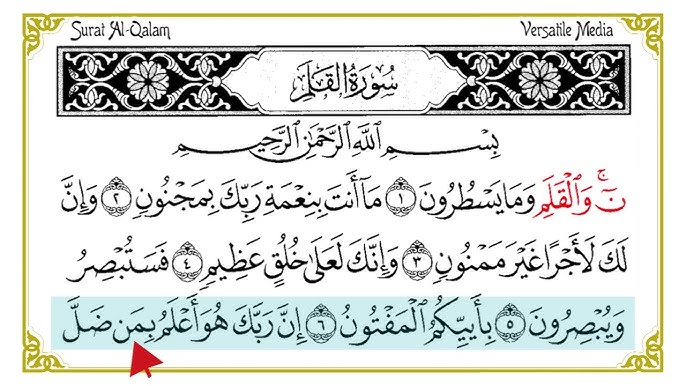 Surat Al-Qalam
Versatile Media
سُورَةُ القَلَمِ
بِسْمِ اللَّهِ الرَّحْمَٰنِ الرَّحِيمِ
نٓ ۚ وَالْقَلَمِ وَمَا يَسْطُرُونَ ۝١ مَا أَنتَ بِنِعْمَةِ رَبِّكَ بِمَجْنُونٍ ۝٢ وَإِنَّ
لَكَ لَأَجْرًا غَيْرَ مَمْنُونٍ ۝٣ وَإِنَّكَ لَعَلَىٰ خُلُقٍ عَظِيمٍ ۝٤ فَسَتُبْصِرُ
وَيُبْصِرُونَ ۝٥ بِأَييِّكُمُ الْمَفْتُونُ ۝٦ إِنَّ رَبَّكَ هُوَ أَعْلَمُ بِمَن ضَلَّ